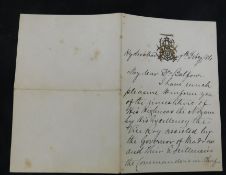 Hyderabad
My dear Dr Balfour
I have much
pleasure to inform you
of the
His Highness the Nizam
by His Excellency the
Viceroy assisted by
the Governor of Madras
and
the Commander in Chief